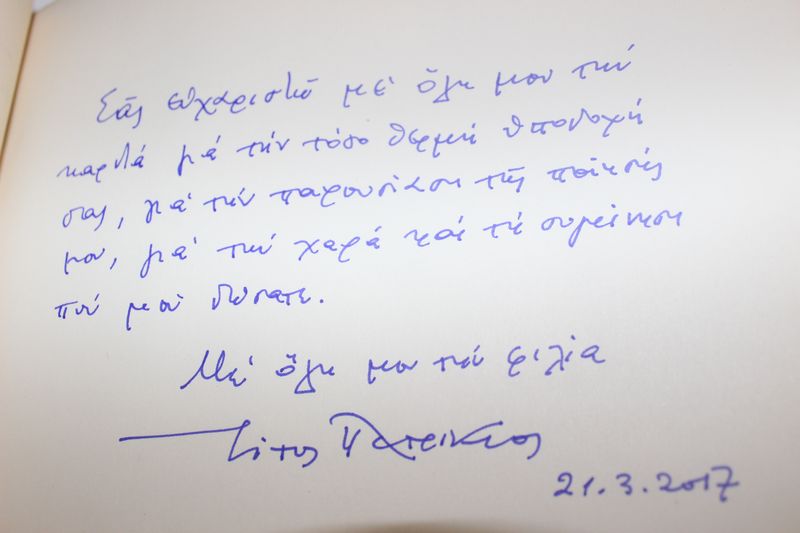 Σᾶς εὐχαριστῶ μέ ὅλη μου τήν
καρδιά γιά τήν τόσο θερμή ὑποδοχή
σας, γιά τήν παρουσίαση τῆς ποίησής
μου, γιά τήν χαρά καί τή συγκίνηση
πού μοῦ δώσατε.
Μέ ὅλη μου τήν φιλία
Τίτος Πατρίκιος
21.3.2017